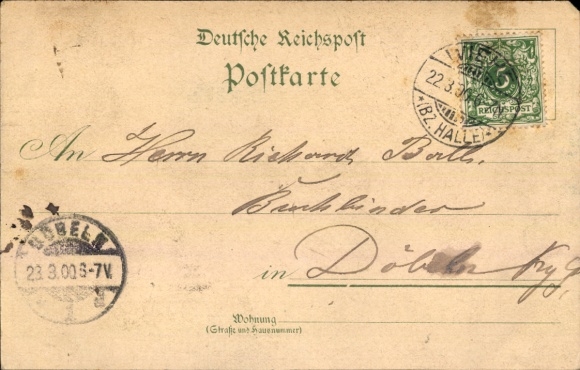 Deutsche Reichspost
Postkarte
5
REICHSPOST
WIEHE
22.3.00
*(BZ. HALLE)*
An Herrn Richard Balt.
Buchbinder
in Döbeln
DÖBELN
23.3.00 6-7V.
Wohnung
(Straße und Hausnummer)